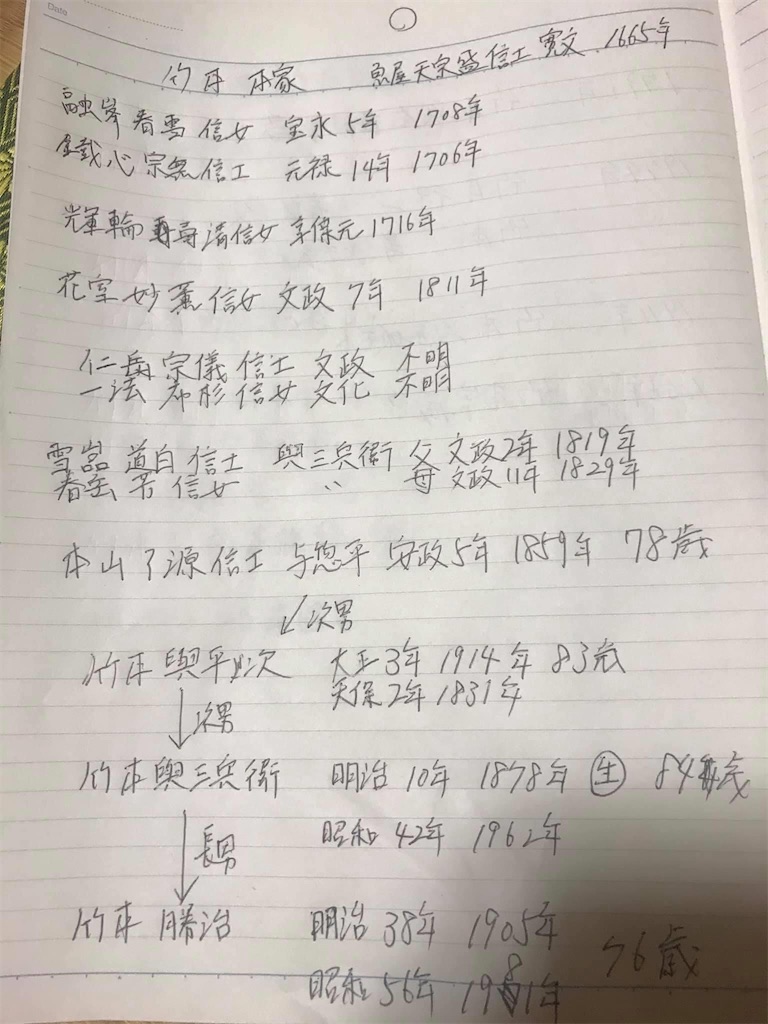 Date
竹本 本家 魚屋天宗盛信士 寛文 1665年
融峯春雪信女 宝永5年 1708年
鐵心宗無信士 元禄14年 1706年
輝輪 清信女 享保元 1716年
花室妙薫信女 文政7年 1811年
仁岳宗儀信士 文政 不明
一法 杉信女 文化 不明
雪嵓道白信士 與三兵衛 父 文政2年 1819年
春 芳信女 〃 母 文政11年 1829年
本山了源信士 与惣平 安政5年 1859年 78歳
次男
竹本與平次 大正3年 1914年 83歳
天保2年 1831年
次男
竹本與三兵衛 明治10年 1878年 生 84歳
昭和42年 1962年
長男
竹本勝治 明治38年 1905年
76歳
昭和56年 1981年